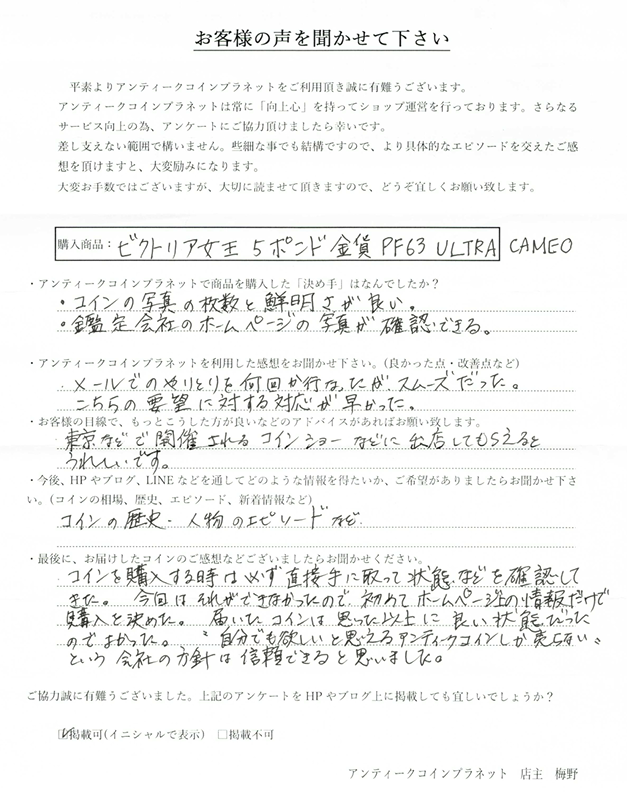 お客様の声を聞かせて下さい
平素よりアンティークコインプラネットをご利用頂き誠に有難うございます。
アンティークコインプラネットは常に「向上心」を持ってショップ運営を行っております。さらなる
サービス向上の為、アンケートにご協力頂けましたら幸いです。
差し支えない範囲で構いません。些細な事でも結構ですので、より具体的なエピソードを交えたご感
想を頂けますと、大変励みになります。
大変お手数ではございますが、大切に読ませて頂きますので、どうぞ宜しくお願い致します。
購入商品：ビクトリア女王 5ポンド金貨 PF63 ULTRA CAMEO
・アンティークコインプラネットで商品を購入した「決め手」はなんでしたか？
・コインの写真の枚数と鮮明さが良い。
・鑑定会社のホームページの写真が確認できる。
・アンティークコインプラネットを利用した感想をお聞かせ下さい。(良かった点・改善点など)
メールでのやりとりを何回か行なったがスムーズだった。
こちらの要望に対する対応が早かった。
・お客様の目線で、もっとこうした方が良いなどのアドバイスがあればお願い致します。
東京などで開催されるコインショーなどに出店してもらえると
うれしいです。
・今後、HPやブログ、LINEなどを通してどのような情報を得たいか、ご希望がありましたらお聞かせ下さ
い。(コインの相場、歴史、エピソード、新着情報など)
コインの歴史・人物のエピソードなど
・最後に、お届けしたコインのご感想などございましたらお聞かせください。
コインを購入する時は必ず直接手に取って状態などを確認して
きた。今回はそれができなかったので、初めてホームページ上の情報だけで
購入を決めた。届いたコインは思った以上に良い状態だった
のでよかった。〝自分でも欲しいと思えるアンティークコインしか売らない〟
という会社の方針は信頼できると思いました。
ご協力誠に有難うございました。上記のアンケートをHPやブログ上に掲載しても宜しいでしょうか？
☑掲載可(イニシャルで表示) □掲載不可
アンティークコインプラネット 店主 梅野